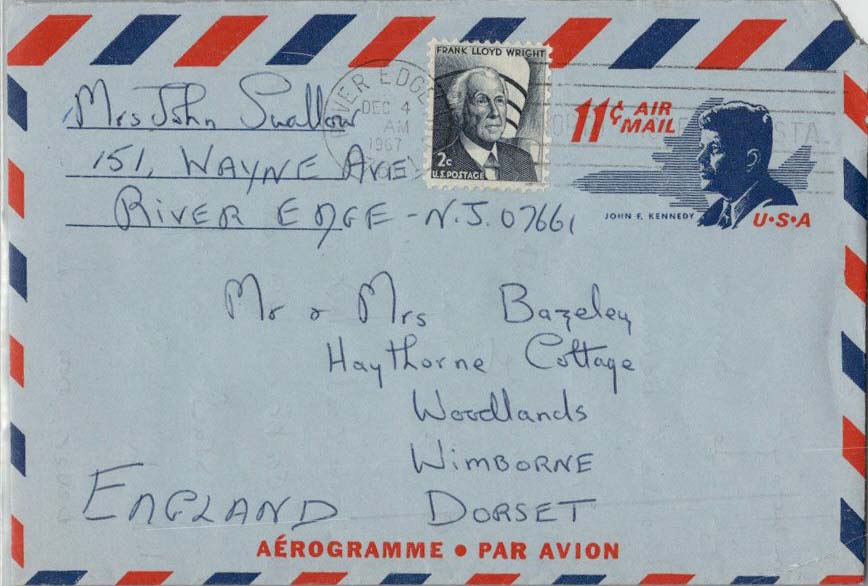 FRANK LLOYD WRIGHT
2c
U.S. POSTAGE
RIVER EDGE
DEC 4
AM
1967
11¢ AIR
MAIL
JOHN F. KENNEDY
U·S·A
Mrs John Swallow
151, WAYNE AVE
RIVER EDGE - N.J. 07661
Mr & Mrs Bazeley
Haythorne Cottage
Woodlands
WIMBORNE
DORSET
ENGLAND
AÉROGRAMME • PAR AVION